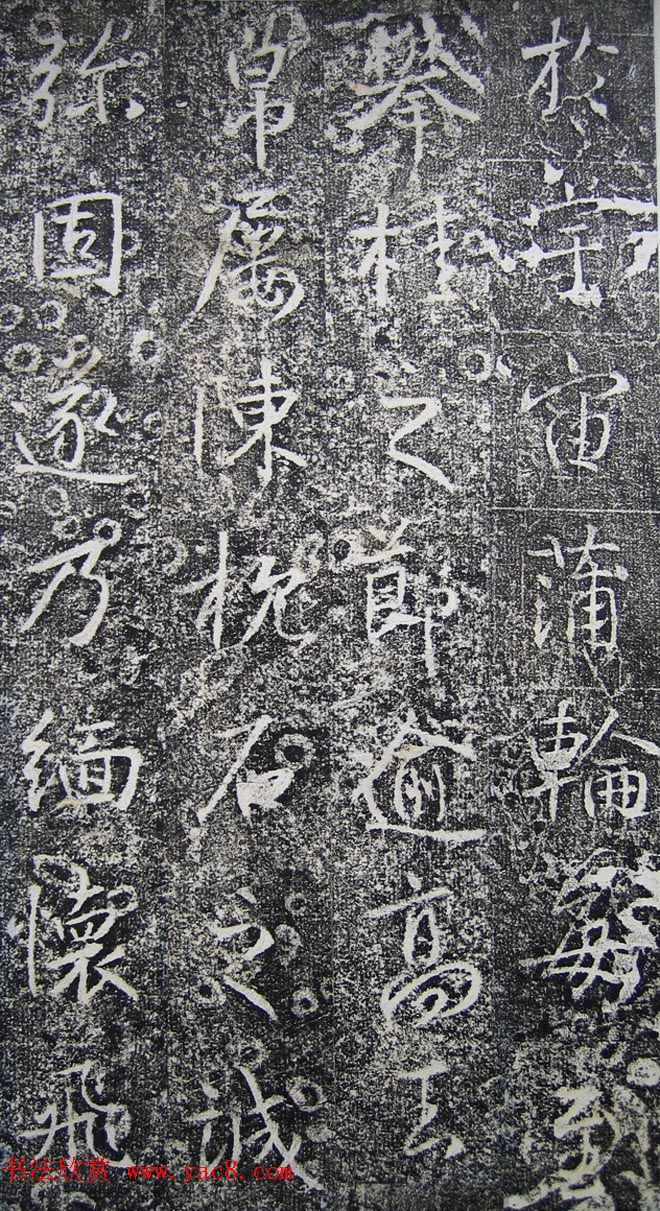 於宙蒲輪每到
攀桂之節逾高玉
帛屢陳枕石之誠
弥固遂乃緬懷飛
书法欣赏 www.yac8.com